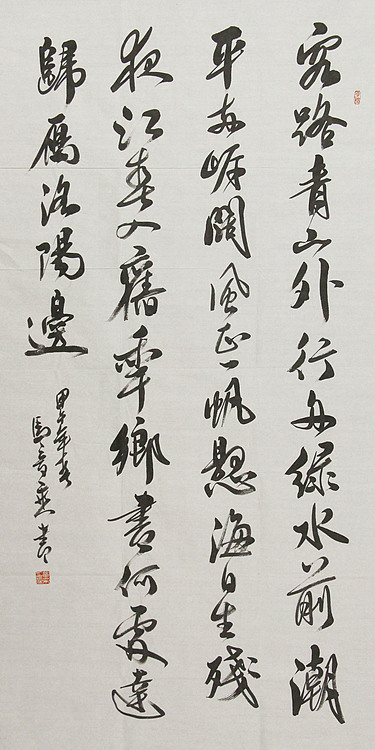 客路青山外行舟綠水前潮
平兩岸闊風正一帆懸海日生殘
夜江春入舊年鄉書何處達
歸鴈洛陽邊
甲午年春
書